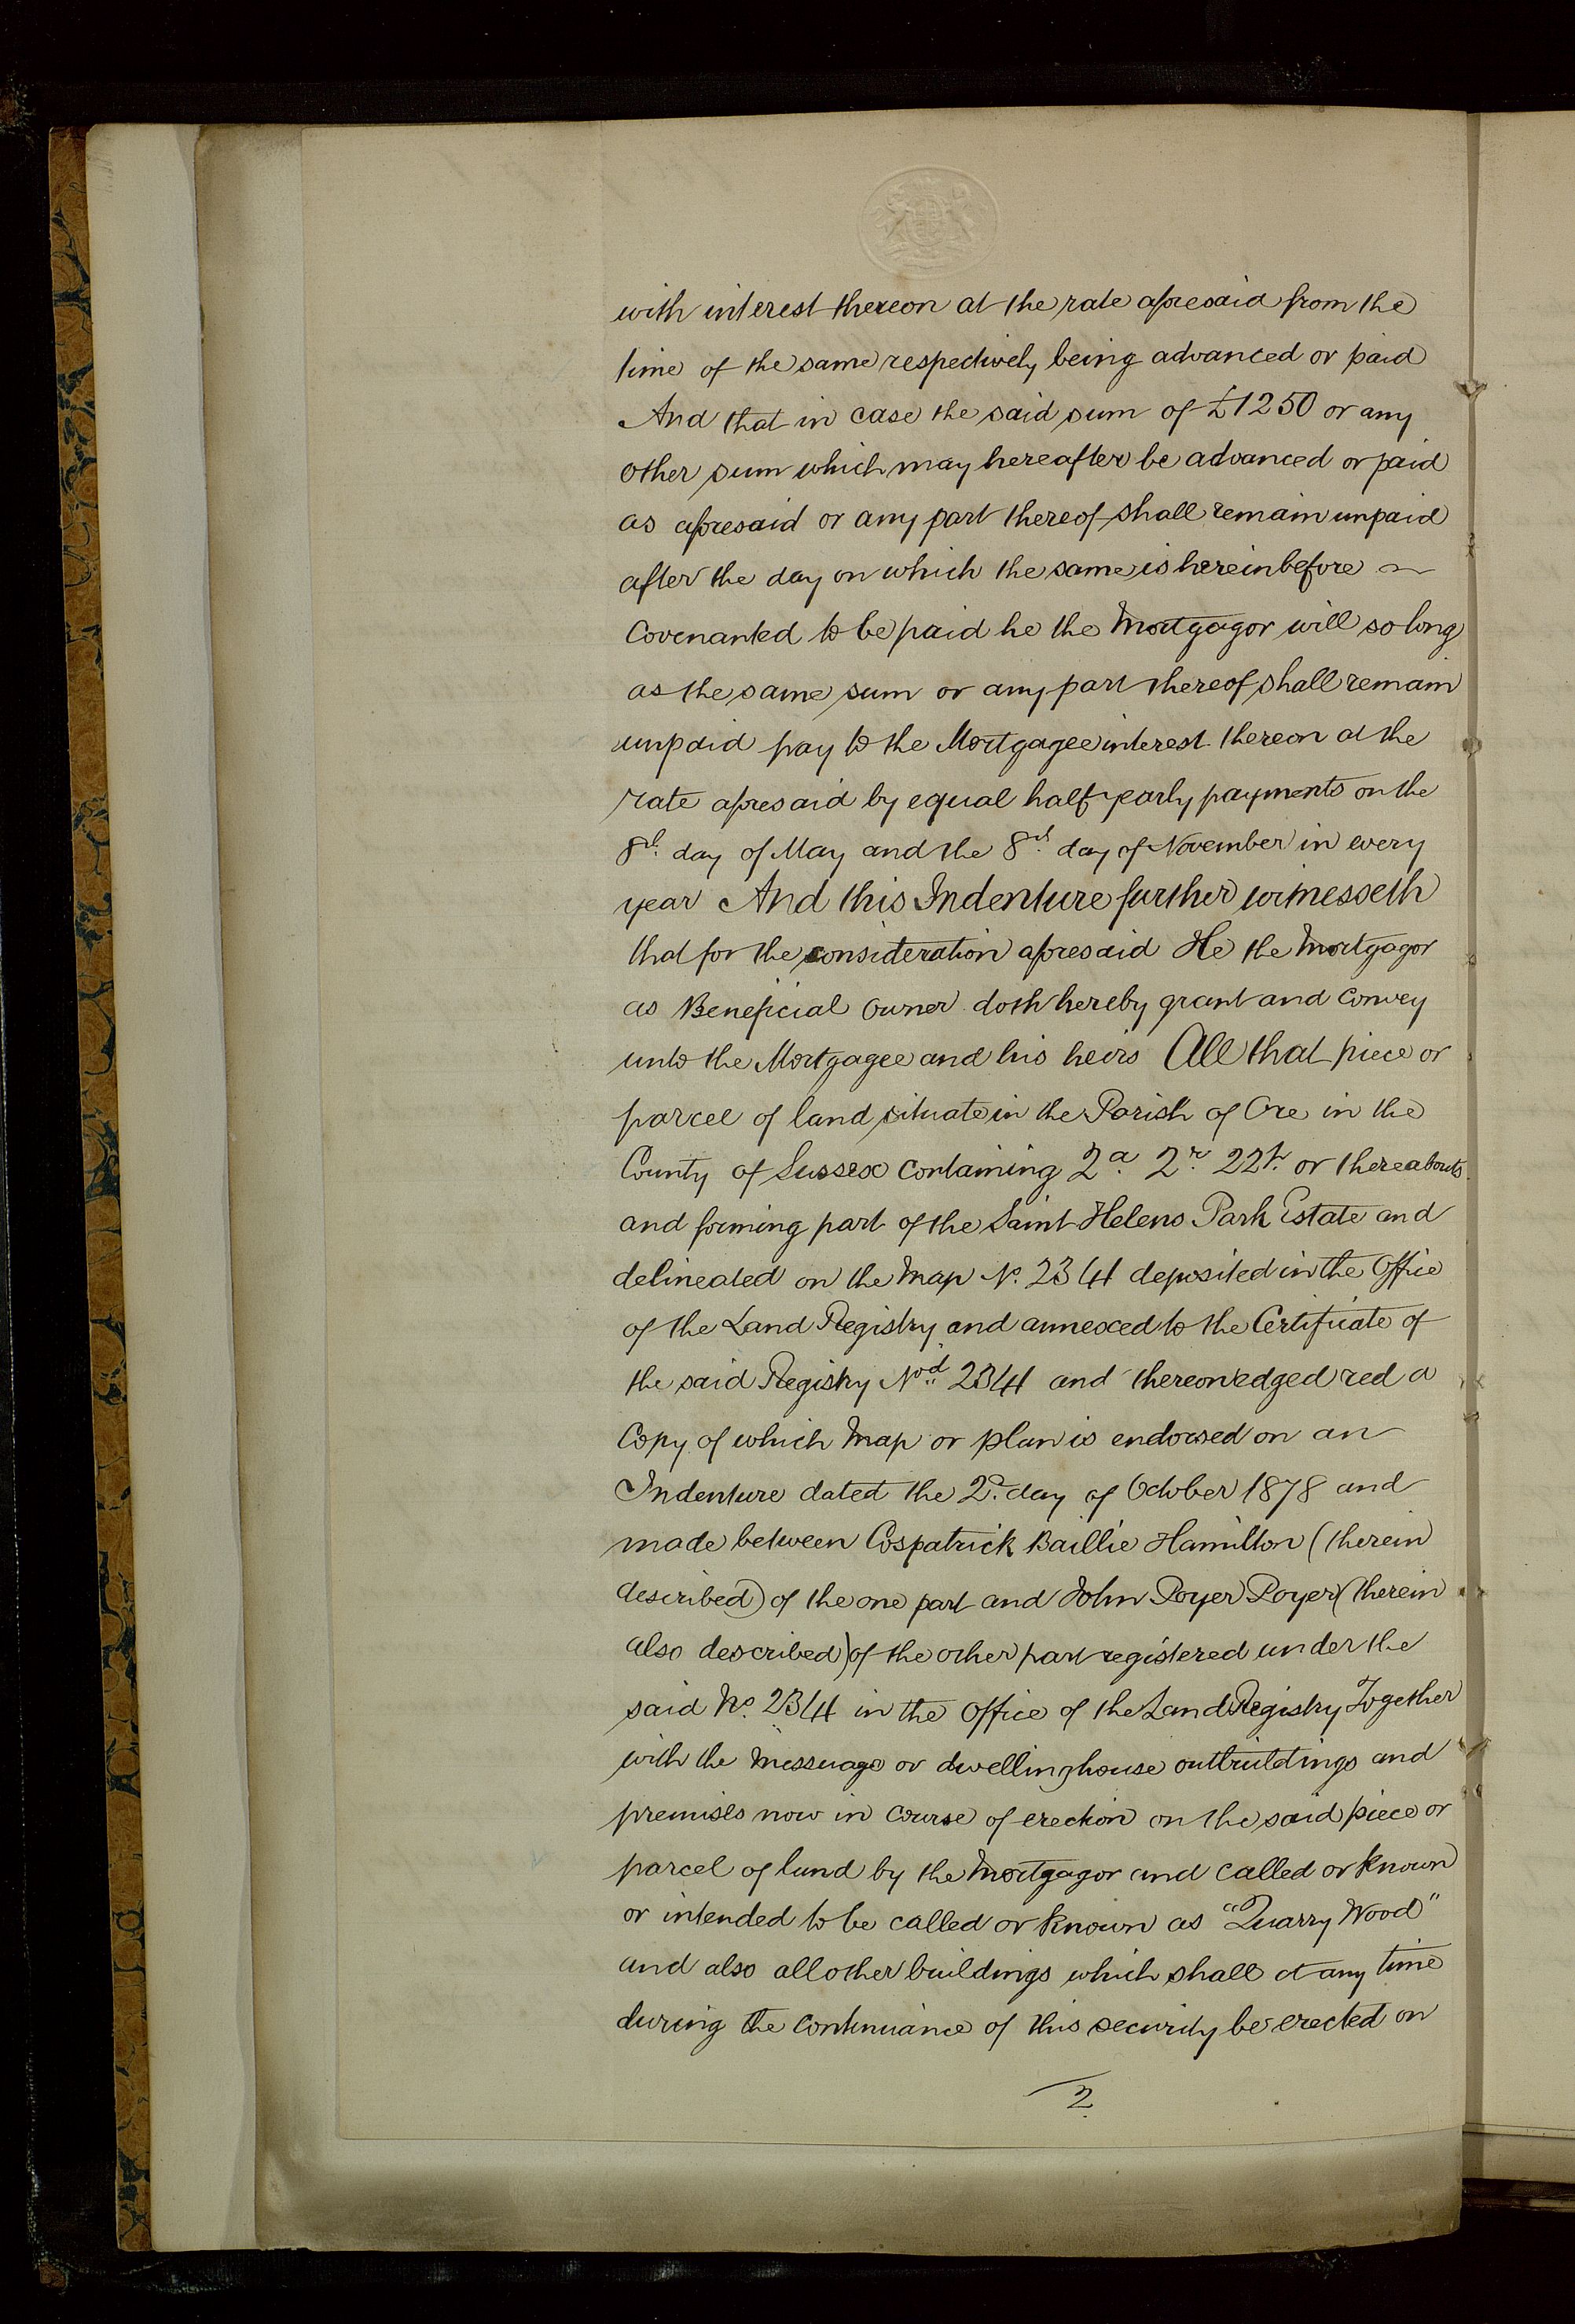 with interest thereon at the rate aforesaid from the
time of the same respectively being advanced or paid
And that in case the said sum of £1250 or any
other sum which may hereafter be advanced or paid
as aforesaid or any part thereof shall remain unpaid
after the day on which the same is hereinbefore ~
Covenanted to be paid he the Mortgagor will so long
as the same sum or any part thereof shall remain
unpaid pay to the Mortgagee interest thereon at the
rate aforesaid by equal half yearly payments on the
8th. day of May and the 8th. day of November in every
year And this Indenture further witnesseth
that for the consideration aforesaid He the Mortgagor
as Beneficial Owner doth hereby grant and Convey
unto the Mortgagee and his heirs All that piece or
parcel of land situate in the Parish of Ore in the
County of Sussex Containing 2a. 2r. 22p. or thereabouts
and forming part of the Saint Helens Park Estate and
delineated on the Map No. 2344 deposited in the Office
of the Land Registry and annexed to the Certificate of
the said Registry Nod. 2344 and thereon edged red a
Copy of which Map or plan is endorsed on an
Indenture dated the 2d. day of October 1878 and
made between Cospatrick Baillie Hamilton (therein
described) of the one part and John Poyer Poyer (therein
also described) of the other part registered under the
said No. 2344 in the Office of the Land Registry Together
with the Messuage or dwellinghouse outbuildings and
premises now in Course of erection on the said piece or
parcel of land by the Mortgagor and called or known
or intended to be called or known as "Quarry Wood"
and also all other buildings which shall at any time
during the Continuance of this security be erected on
2